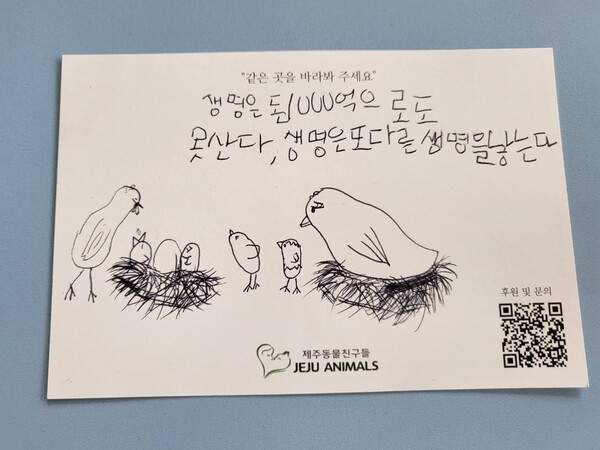 "같은 곳을 바라봐 주세요"
생명은 돈1000억으로도
못산다, 생명은또다른생명을낳는다
후원 및 문의
제주동물친구들
JEJU ANIMALS